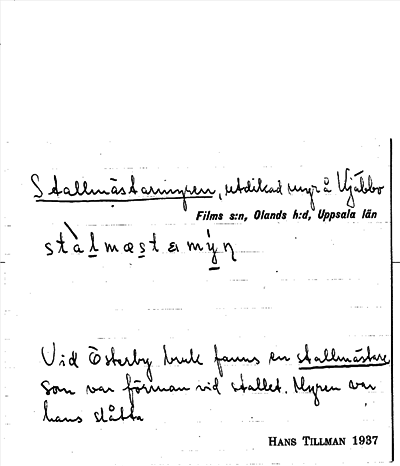 Stallmästarmyren, utdikad myr å Vjäbbo
Films s:n, Olands h:d, Uppsala län
stàlmæstamýn
Vid Österby bruk fanns en stallmästare
som var förman vid stallet. Myren var
hans slåtta
HANS TILLMAN 1937